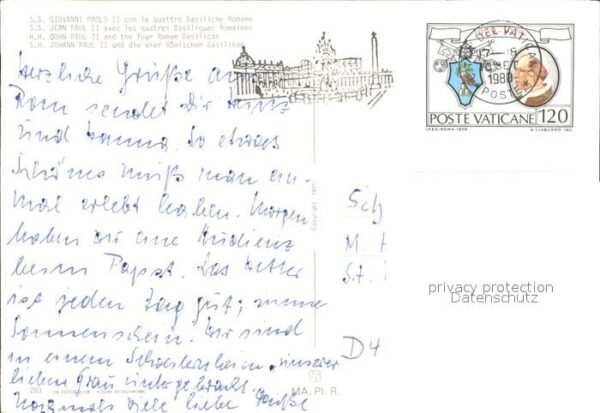 S.S. GIOVANNI PAOLO II con le quattro Basiliche Romane
S.S. JEAN PAUL II avec les quatres Basiliques Romaines
H.H. JOHN PAUL II and the four Roman Basilicas
S.H. JOHANN PAUL II und die vier Römischen Basiliken
Herzliche Grüße aus
Rom sendet Dir
und Hanna. So etwas
Schönes muß man ein-
mal erlebt haben. Morgen
haben wir eine Audienz
beim Papst. Das Wetter
ist jeden Tag gut; immer
Sonnenschein. Wir sind
in einem Schwesternheim, unserer
lieben Frau untergebracht.
Nochmals viele liebe Grüße
283
MA.PI.R.
Copyright 1978
POSTE VATICANE 120
I.P.Z.S.-ROMA-1979
R. CIABURRO INC.
1980
POSTE
Sch
M.
St.
D4
privacy protection
Datenschutz